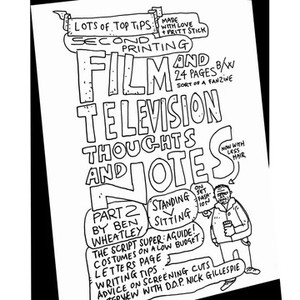 LOTS OF TOP TIPS
MADE
WITH LOVE
+ PRITT STICK
SECOND
PRINTING
FILM AND
24 PAGES B/W
SORT OF A FANZINE
TELEVISION
THOUGHTS
AND NOTES
NOW WITH
LESS
HAIR
PART 2
BY BEN
WHEATLEY
STANDING
SITTING
ON
SET
THE SCRIPT SUPER: A GUIDE!
COSTUMES ON A LOW BUDGET
LETTERS PAGE
WRITING TIPS
ADVICE ON SCREENING CUTS
INTERVIEW WITH D.O.P. NICK GILLESPIE